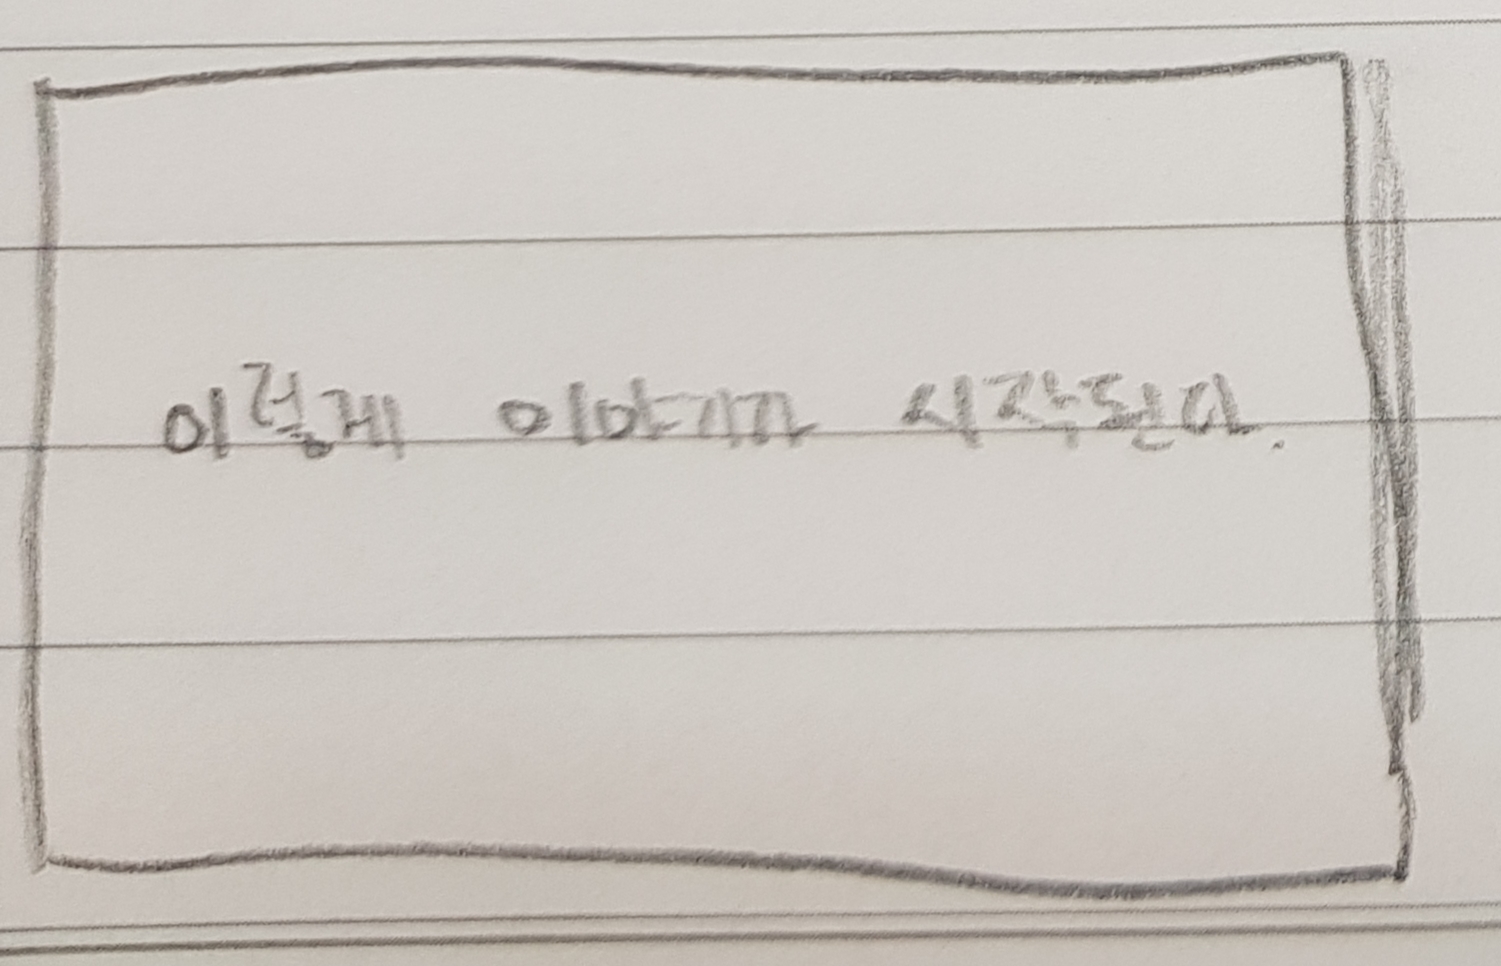 이렇게 이야기가 시작된다.